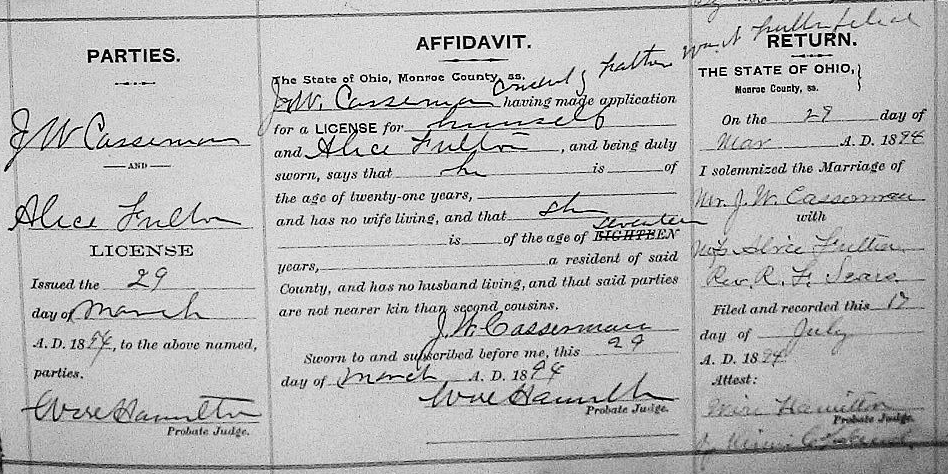 PARTIES.
J W Casserman
AND
Alice Fulton
LICENSE
Issued the 29
day of March
A. D. 1894, to the above named,
parties.
Hamilton
Probate Judge.
AFFIDAVIT.
consent of father
The State of Ohio, Monroe County, ss.
J. W. Casserman having made application
for a LICENSE for himself
and Alice Fulton, and being duly
sworn, says that he is of
the age of twenty-one years,
and has no wife living, and that she
seventeen
is of the age of EIGHTEEN
years, a resident of said
County, and has no husband living, and that said parties
are not nearer kin than second cousins.
J. W. Casserman
Sworn to and subscribed before me, this 29
day of March A. D. 1894
Hamilton
Probate Judge.
RETURN.
THE STATE OF OHIO,
Monroe County, ss.
On the 29 day of
Mar A. D. 1894
I solemnized the Marriage of
Mr. J. W. Casserman
with
Alice Fulton
Rev. R. F. Sears
Filed and recorded this 17
day of July
A. D. 1894
Attest:
Hamilton
Probate Judge.